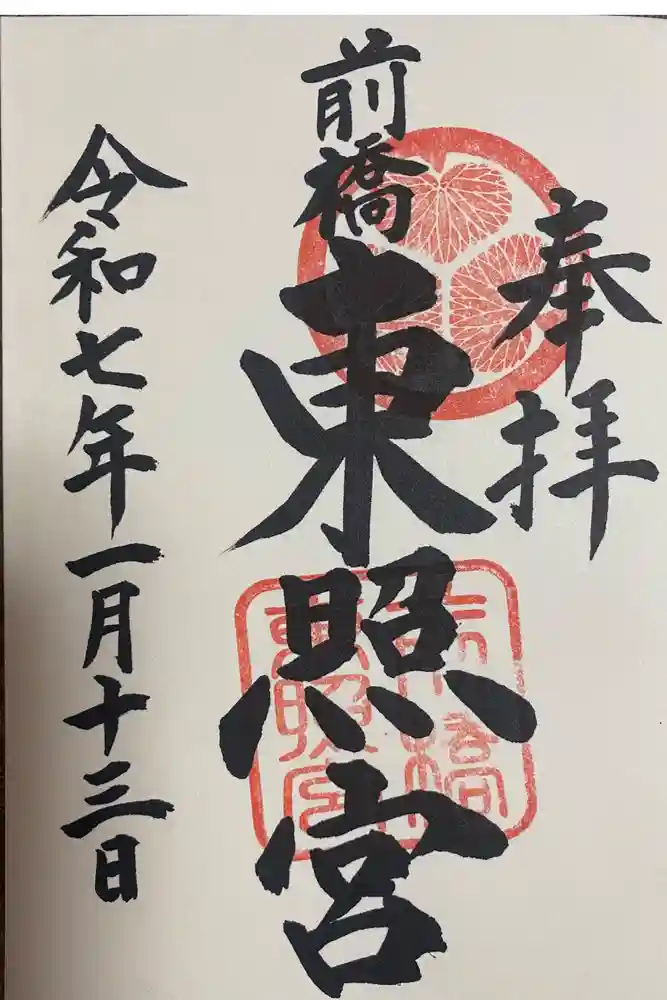 奉拝
前橋
東照宮
令和七年一月十三日
前橋
東照宮